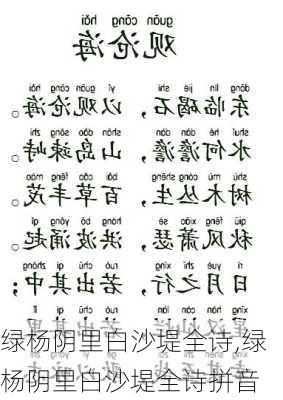 guān cāng hǎi
观沧海
dōng lín jié shí yǐ guān cāng hǎi
东临碣石，以观沧海。
shuǐ hé dàn dàn shān dǎo sǒng zhì
水何澹澹，山岛竦峙。
shù mù cóng shēng bǎi cǎo fēng mào
树木丛生，百草丰茂。
qiū fēng xiāo sè hóng bō yǒng qǐ
秋风萧瑟，洪波涌起。
rì yuè zhī xíng ruò chū qí zhōng
日月之行，若出其中；
绿杨阴里白沙堤全诗,绿
杨阴里白沙堤全诗拼音